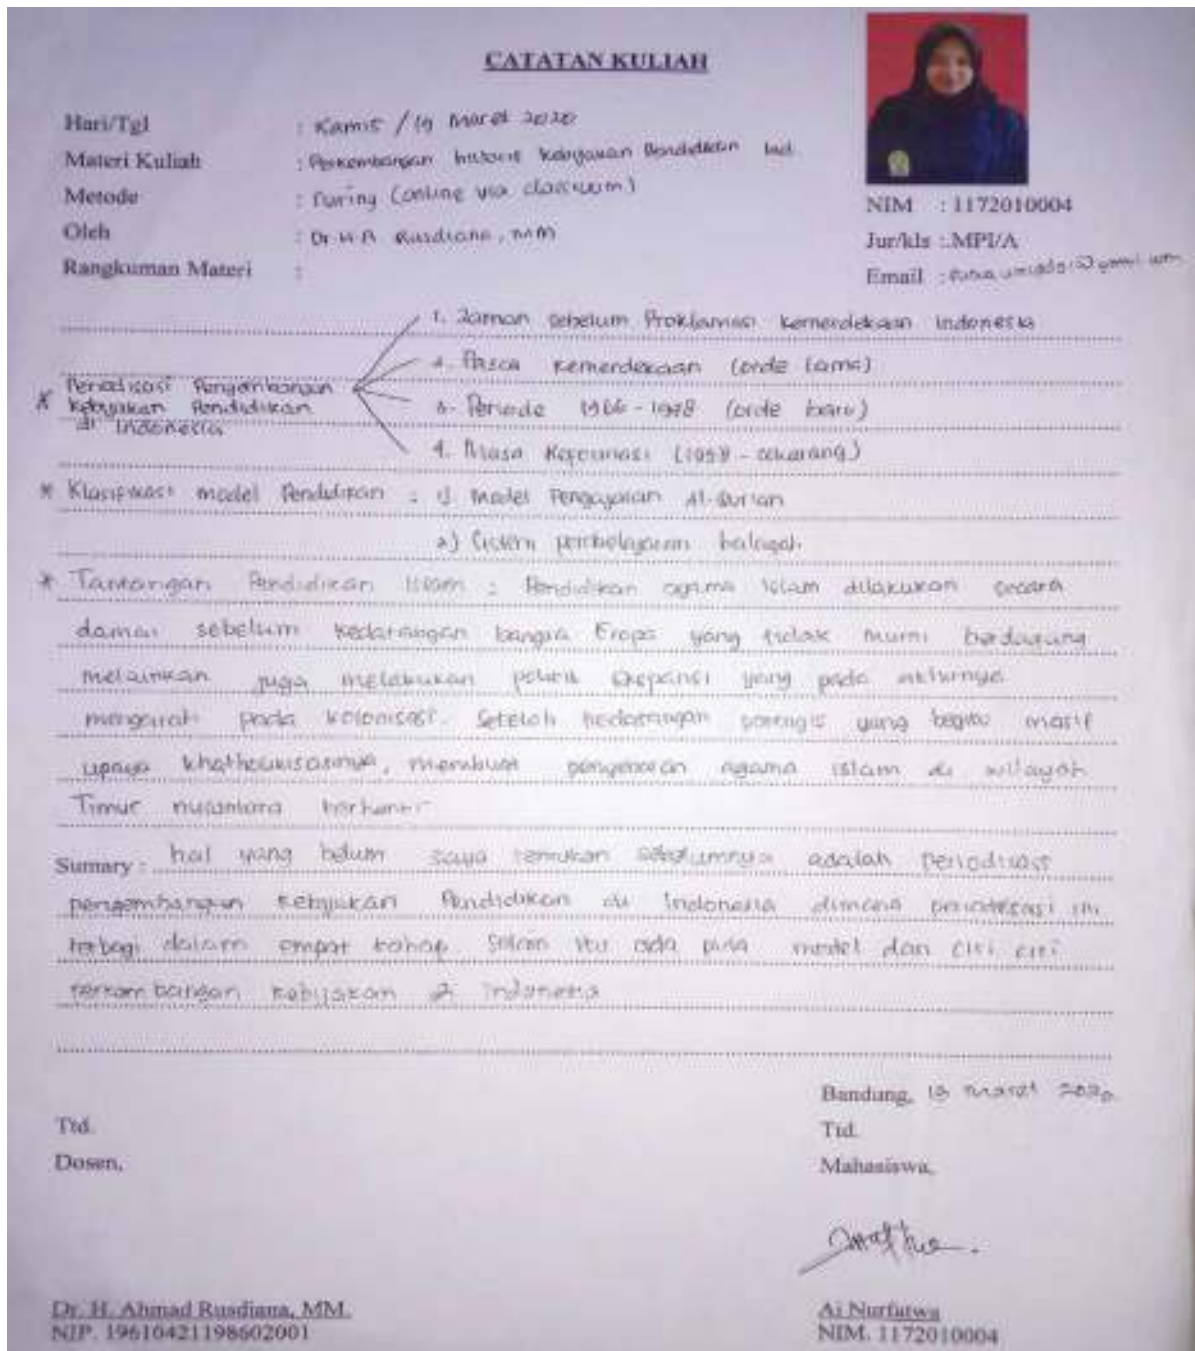 CATATAN KULIAH
Hari/Tgl : Kamis / 19 Maret 2020
Materi Kuliah : Perkembangan historis kebijakan Pendidikan Ind.
Metode : Daring (online via classroom)
Oleh : Dr. H. A. Rusdiana, MM
Rangkuman Materi :
NIM : 1172010004
Jur/kls : MPI/A
Email :
1. Zaman sebelum Proklamasi kemerdekaan Indonesia
2. Pasca kemerdekaan (orde lama)
* Periodisasi Pengembangan
Kebijakan Pendidikan
di Indonesia
3. Periode 1966-1998 (orde baru)
4. Masa Reformasi (1998 - sekarang)
* Klasifikasi model Pendidikan : 1) Model Pengajaran Al-Qur'an
2) Sistem pembelajaran halaqah
* Tantangan Pendidikan Islam : Pendidikan agama islam dilakukan secara
damai sebelum kedatangan bangsa Eropa yang tidak murni berdagang
melainkan juga melakukan politik ekspansi yang pada akhirnya
mengarah pada kolonisasi. Setelah kedatangan portugis yang begitu masif
upaya khatholikisasinya, membuat agama islam di wilayah
Timur nusantara terhenti
Sumary : hal yang belum saya temukan sebelumnya adalah periodisasi
pengembangan kebijakan Pendidikan di Indonesia dimana periodesasi ini
terbagi dalam empat tahap. Selain itu ada pula model dan
perkembangan kebijakan di indonesia
Bandung, 19 maret 2020
Ttd.
Dosen,
Ttd.
Mahasiswa,
Dr. H. Ahmad Rusdiana, MM.
NIP. 19610421198602001
Ai Nurfutwa
NIM. 1172010004